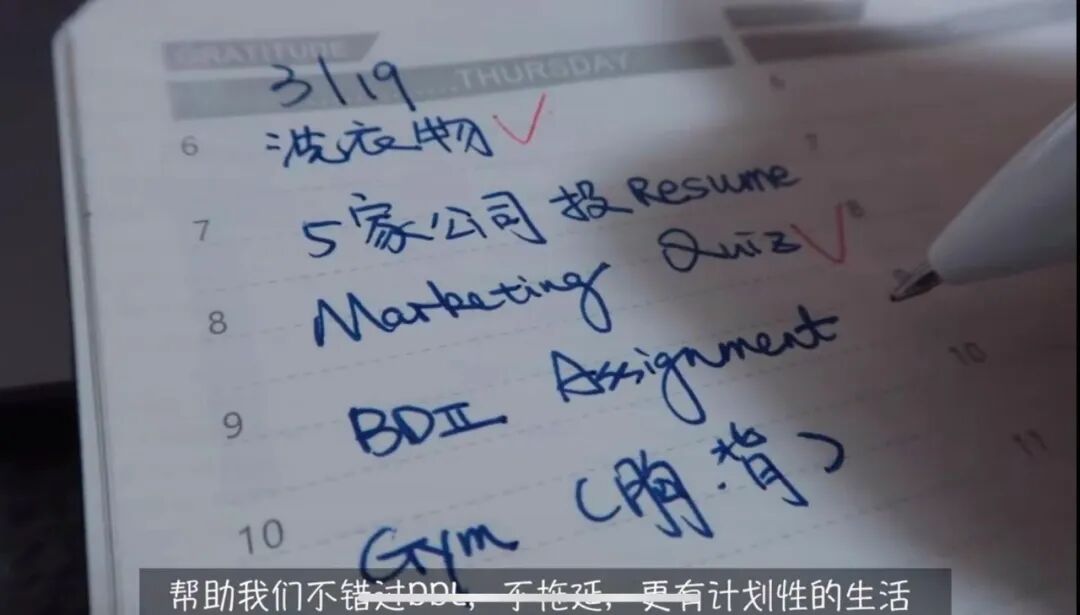 GRATITUDE
THURSDAY
3/19
6 洗衣物 ✓
7 5家公司投Resume
8 Marketing Quiz ✓
9 BDII Assignment
10 Gym (胸.背)
6
7
8
9
10
11
帮助我们不错过DDL，不拖延，更有计划性的生活